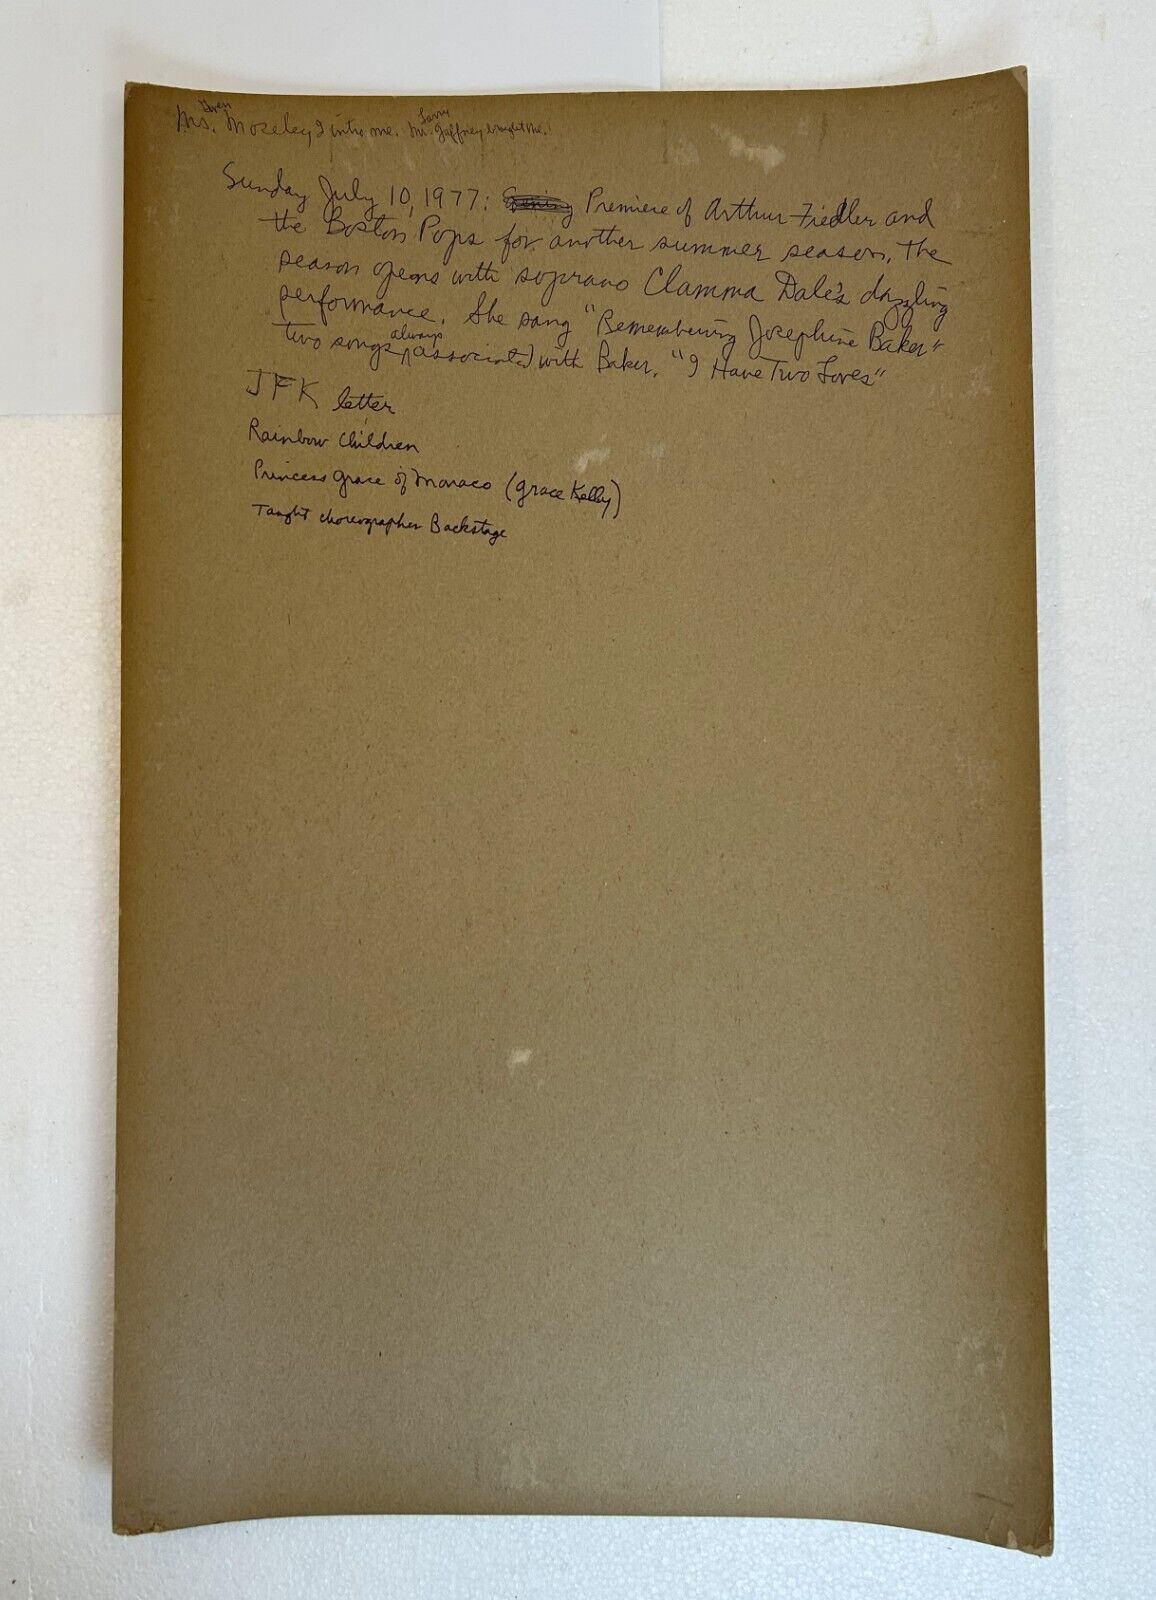 Ms. Gwen Moseley, I intro me. Mr. Larry Gaffney brought me.
Sunday July 10, 1977: Premiere of Arthur Fiedler and
the Boston Pops for another summer season. The
season opens with soprano Clamma Dale's dazzling
performance. She sang "Remembering Josephine Baker"
two songs always associated with Baker. "I Have Two Loves"
JFK letter
Rainbow Children
Princess Grace of Monaco (Grace Kelly)
Taught choreographer Backstage